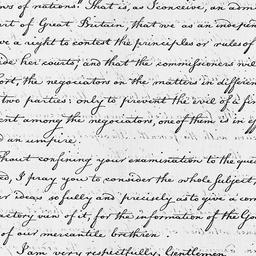 ws of nations. That is, as I conceive, an adm
rt of Great Britain, that we as an indepen
ve a right to contest the principles or rules of
ide her courts; and that the commissioners wil
ort, the negociators on the matters in differen
two parties: only to prevent the evil of a fin
ent among the negociators, one of them is in eff
d an umpire.
thout confining your examination to the que
ed, I pray you to consider the whole subject,
r ideas so fully and precisely as to give a com
actory view of it, for the information of the Go
of our mercantile brethren.
I am very respectfully, Gentlemen